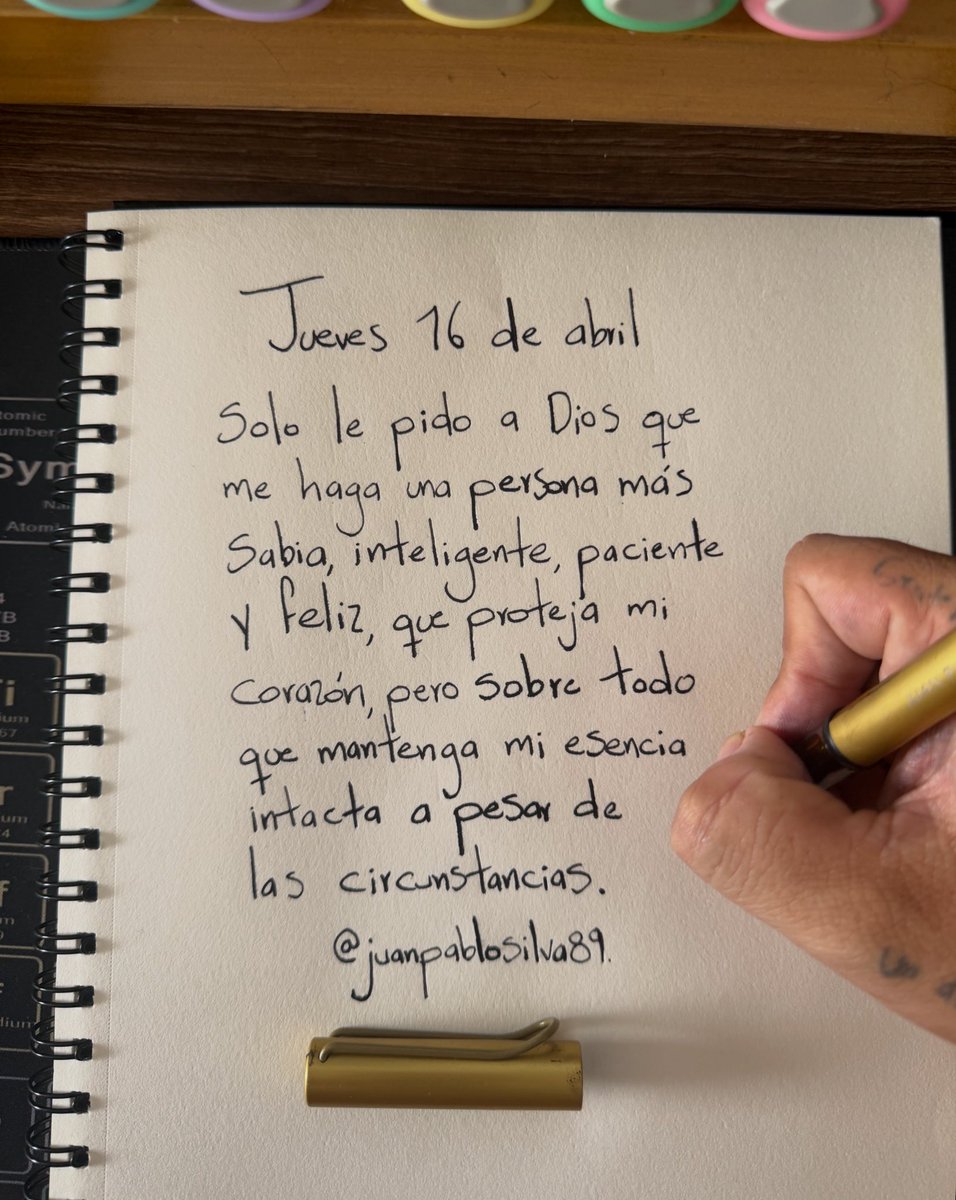 Jueves 16 de abril
Solo le pido a Dios que
me haga una persona más
Sabia, inteligente, paciente
y feliz, que proteja mi
corazón, pero sobre todo
que mantenga mi esencia
intacta a pesar de
las circunstancias.
@juanpablosilva89.